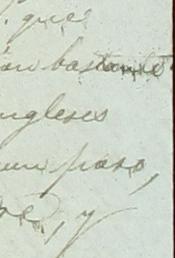 que
bastante
ngleses
un paso,
, y